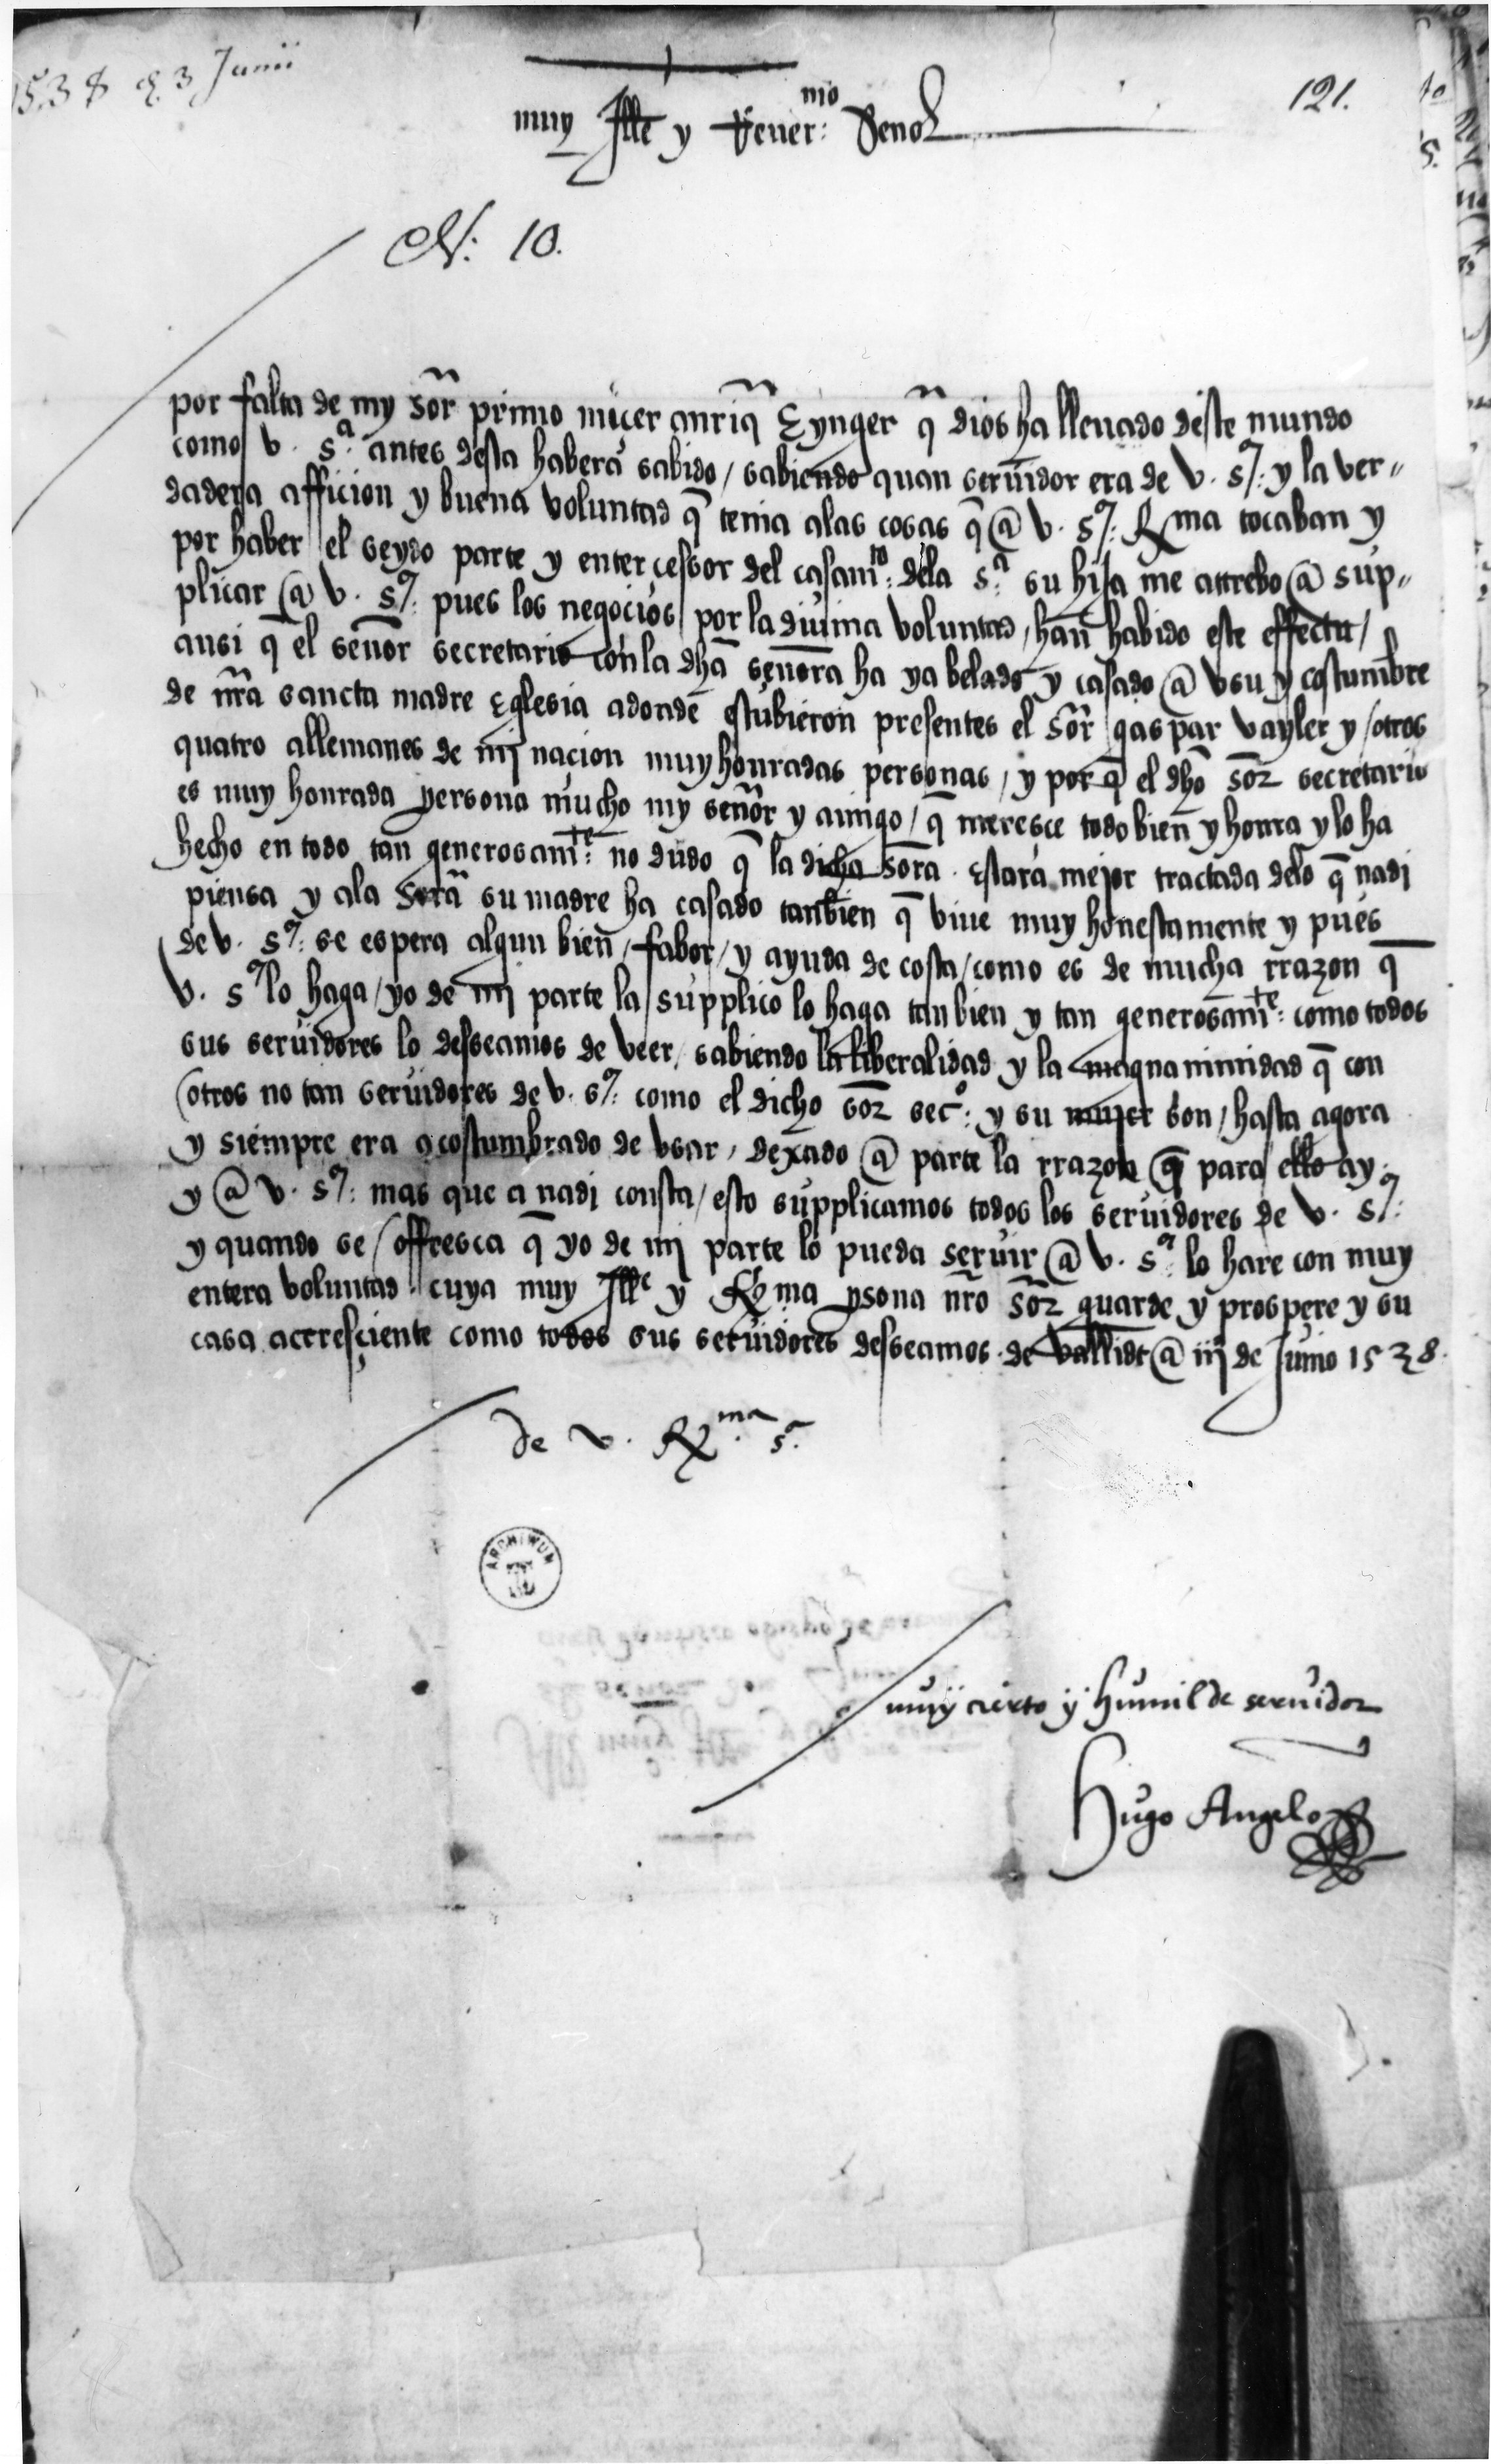 1538 d. 3 Junii
121.
muy Ille y Reuer:mo Señor
N: 10.
por falta de my Sõr primo micer anriq̃ Eynger q̃ dios ha lleuado deste mundo
como v. s.a antes desta haberá sabido / sabiendo quan seruidor era de v. s.a: y la ver,,
dadera afficion y buena voluntad q̃ tenia alas cosas q̃ @ v. s.a: Rma tocaban y
por haber el seydo parte y entercessor del casamto: dela s.a su hija me atrebo @ sup,,
plicar @ v. s.a: pues los negocios por la diuina voluntad, han habido este effectu /
ansi q̃ el señor secretario con la dhã señora ha ya belado y casado @ vsu y costumbre
de nr̃a sancta madre Eglesia adonde estubieron presentes el Sõr gaspar vayler y otros
quatro allemanes de mj nacion muy honradas personas / y por q̃ el dhõ sõr secretario
es muy honrada persona mucho my señor y amigo / q̃ meresce todo bien y honra y lo ha
hecho en todo tan generosamte: no dudo q̃ la dicha sõra. Estará mejor tractada delo q̃ nadi
piensa y ala sorã su madre ha casado tanbien q̃ viue muy honestamente y pues
de v. s.a: se espera algun bien / fabor / y ayuda de costa / como es de mucha rrazon q̃
v. s.a lo haga / yo de mj parte la supplico lo haga tan bien y tan generosamte: como todos
sus seruidores lo desseamos de veer / sabiendo la liberalidad y la magnanimidad q̃ con
otros no tan seruidores de v. s.a: como el dicho sõr sec.o: y su mujer son / hasta agora
y siempre era acostumbrado de vsar, dexado @ parte la rrazon q̃ para ello ay
y @ v. s.a: mas que a nadi consta / esto supplicamos todos los seruidores de v. s.a:
y quando se offresca q̃ yo de mj parte lo pueda seruir @ v. s.a: lo hare con muy
entera voluntad cuya muy Ille y Rma psona nr̃o sõr guarde y prospere y su
casa acresçiente como todos sus seruidores desseamos. de vallidt @ iij de Junio 1538.
de v. Rma s.a
ARCHIWUM
muy cierto y humilde seruidor
Hugo Angelo